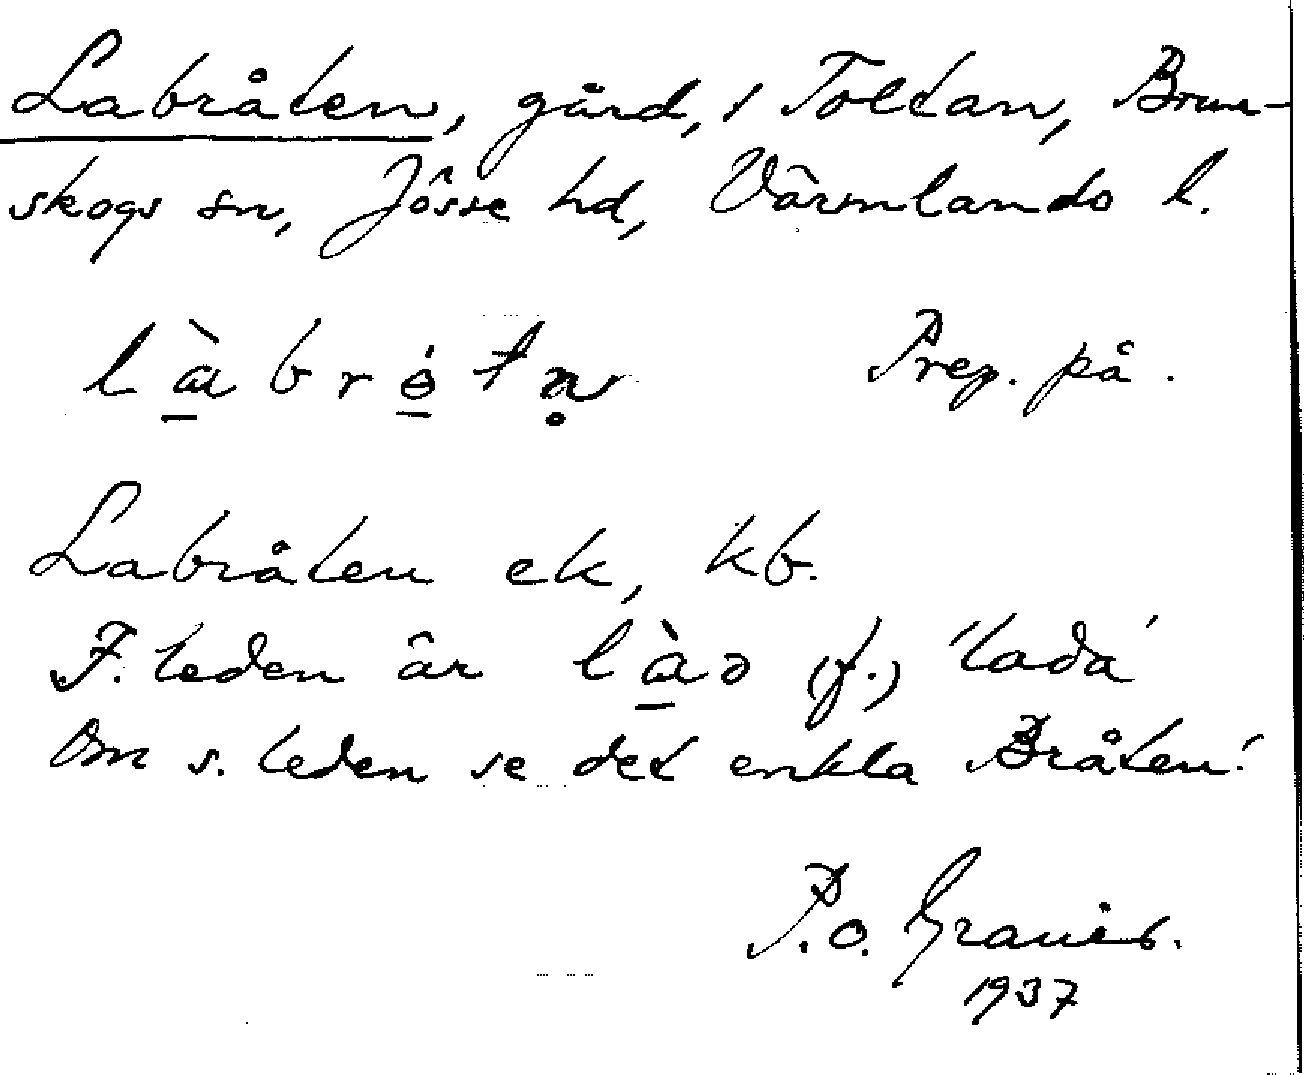 Labråten, gård, i Toltan, Brun-
skogs sn, Jösse hd, Värmlands l.
l à b r ó t n̥ Prep. på.
Labråten ek, kb.
F. leden är l à ə (f.) 'lada'
Om s. leden se det enkla Bråten!
P. O.
1937